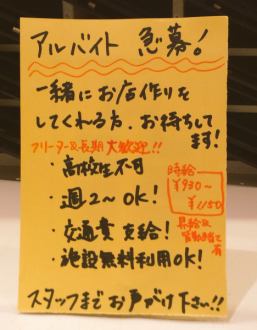 アルバイト 急募!
一緒にお店作りを
してくれる方、お待ちして
ます!
フリーター&長期大歓迎!!
・高校生不可
・週2~OK!
・交通費支給!
・施設無料利用OK!
時給
¥930~
¥1150
昇給&
皆勤手当て
有
スタッフまでお声がけ下さい!!